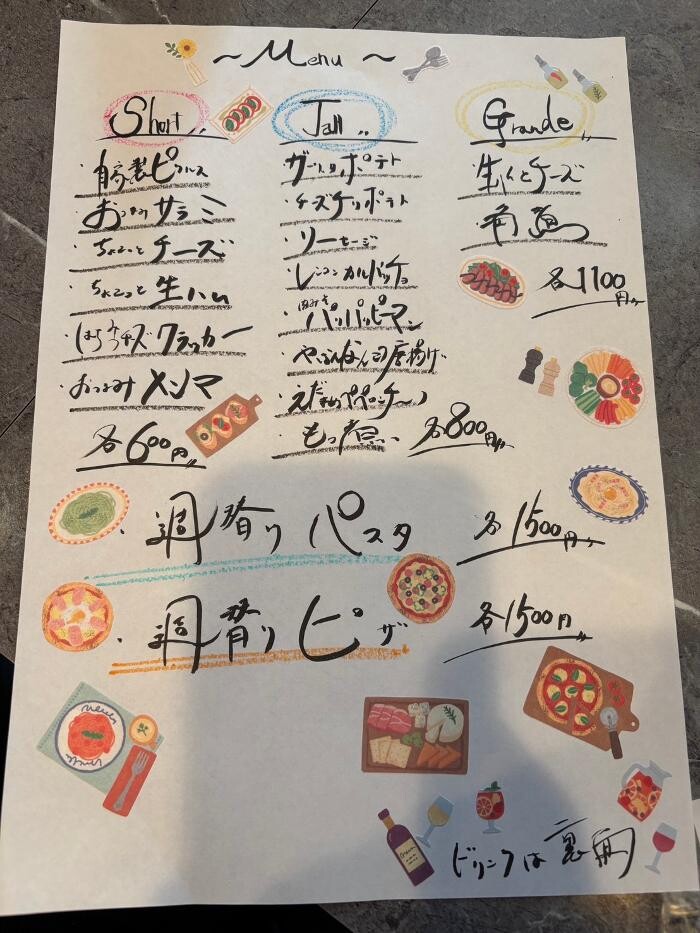 ~ Menu ~
Short
・自家製ピクルス
・おつまみサラミ
・ちょこっとチーズ
・ちょこっと生ハム
・はちみつチーズクラッカー
・おつまみメンマ
各600円
Tall
・ガーリックポテト
・チーズチリポテト
・ソーセージ
・レンコンカルパッチョ
・パリパリピーマン
・やげんなんこつ唐揚げ
・えだまめペペロンチーノ
・もつ煮
各800円
Grande
・生ハムとチーズ
各1100円
・週替りパスタ
各1500円
・週替りピザ
各1500円
ドリンクは裏面